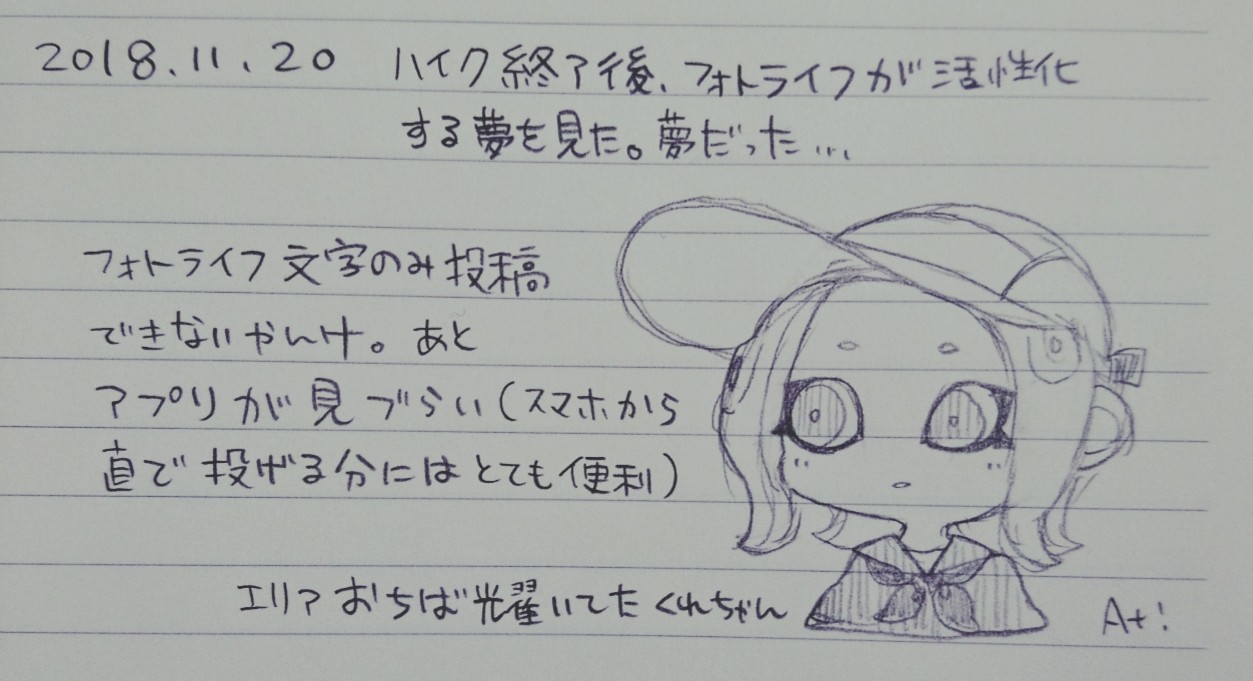 2018.11.20 ハイク終了後、フォトライフが活性化
する夢を見た。夢だった…
フォトライフ文字のみ投稿
できないやんけ。あと
アプリが見づらい(スマホから
直で投げる分にはとても便利)
エリアおちば光耀いてたくれちゃん
A+!